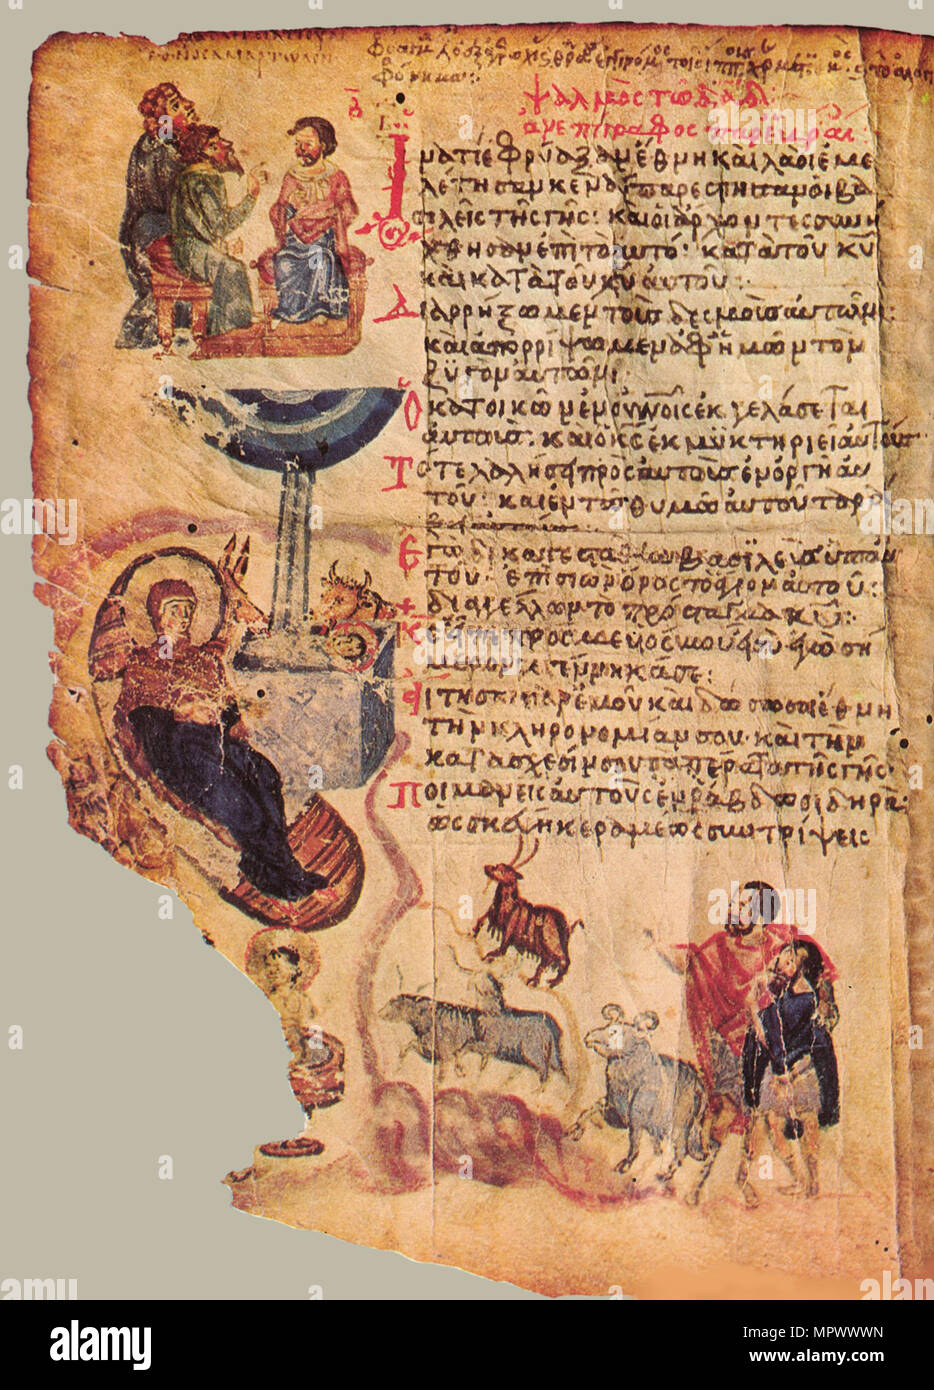 ψαλμὸς τῶ δα̅δ
ἀνεπίγραφος παρ ἑβραί
Ἱνα τί ἐφρύαξαν ἔθνη καὶ λαοὶ ἐμε
λέτησαν κενά: παρέστησαν οἱ βα
σιλεῖς τῆς γῆς: καὶ οἱ ἄρχοντες συνή
χθησαν ἐπὶ τὸ αὐτό: κατὰ τοῦ κ̅υ̅
καὶ κατὰ τοῦ χ̅υ̅ αὐτοῦ:
Διαρρήξωμεν τοὺς δεσμοὺς αὐτῶν:
καὶ ἀπορρίψωμεν ἀφ ἡμῶν τὸν
ζυγὸν αὐτῶν:
Ὁ κατοικῶν ἐν ου̅νοις ἐκγελάσεται
αὐτούς: καὶ ὁ κ̅ς̅ ἐκμυκτηριεῖ αὐτούς
Τότε λαλήσει πρὸς αὐτοὺς ἐν ὀργῆ αὐ
τοῦ: καὶ ἐν τῶ θυμῶ αὐτοῦ ταρά
ξει αὐτούς
Ἐγὼ δὲ κατεστάθην βασιλεὺς ὑπ αὐ
τοῦ: ἐπὶ σιὼν ὄρος τὸ ἅγιον αὐτοῦ:
διαγγέλλων τὸ πρόσταγμα κ̅υ̅:
Κ̅ς̅ εἶπεν πρός με υἱός μου εἶ σὺ ἐγὼ σή
μερον γεγέννηκά σε:
Αἴτησαι παρ ἐμοῦ καὶ δώσω σοι ἔθνη
τὴν κληρονομίαν σου: καὶ τὴν
κατάσχεσίν σου τὰ πέρατα τῆς γῆς:
Ποιμανεῖς αὐτοὺς ἐν ῥάβδω σιδηρᾶ:
ὡς σκεύη κεραμέως συντρίψεις
alamy
Image ID: MPWWWN
www.alamy.com